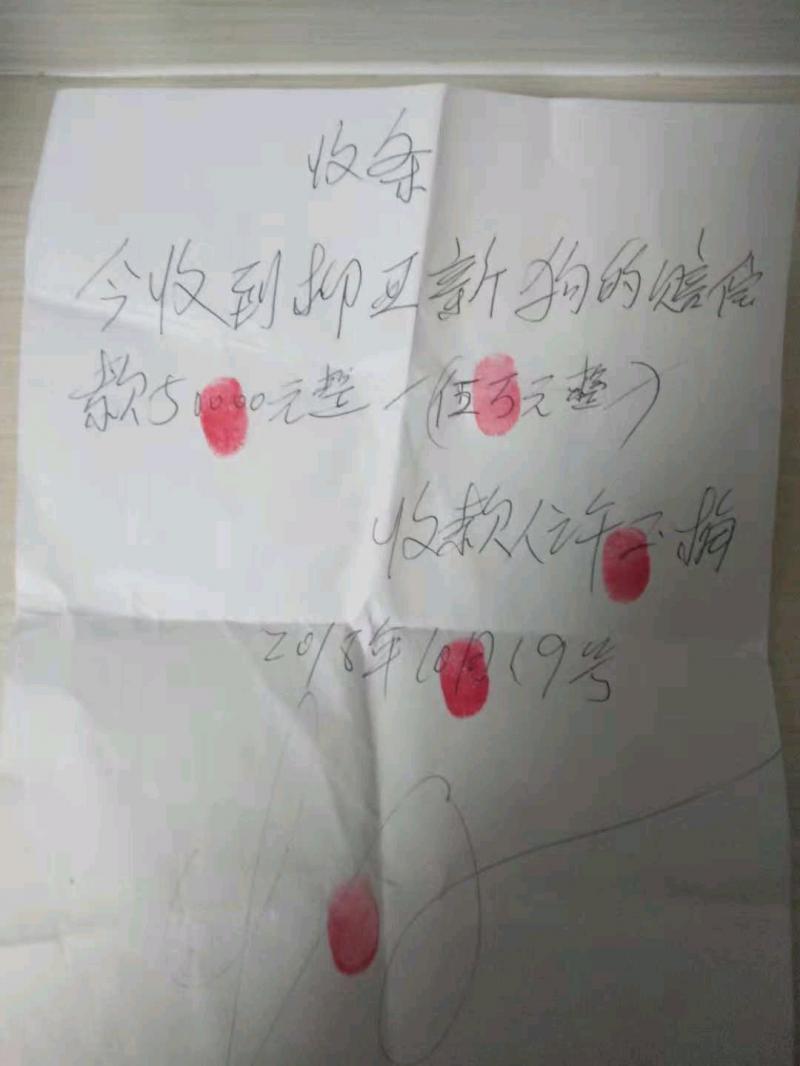 收条
今收到柳亚新狗的赔偿
款50000元整(伍万元整)
收款人许玉梅
2018年10月19号